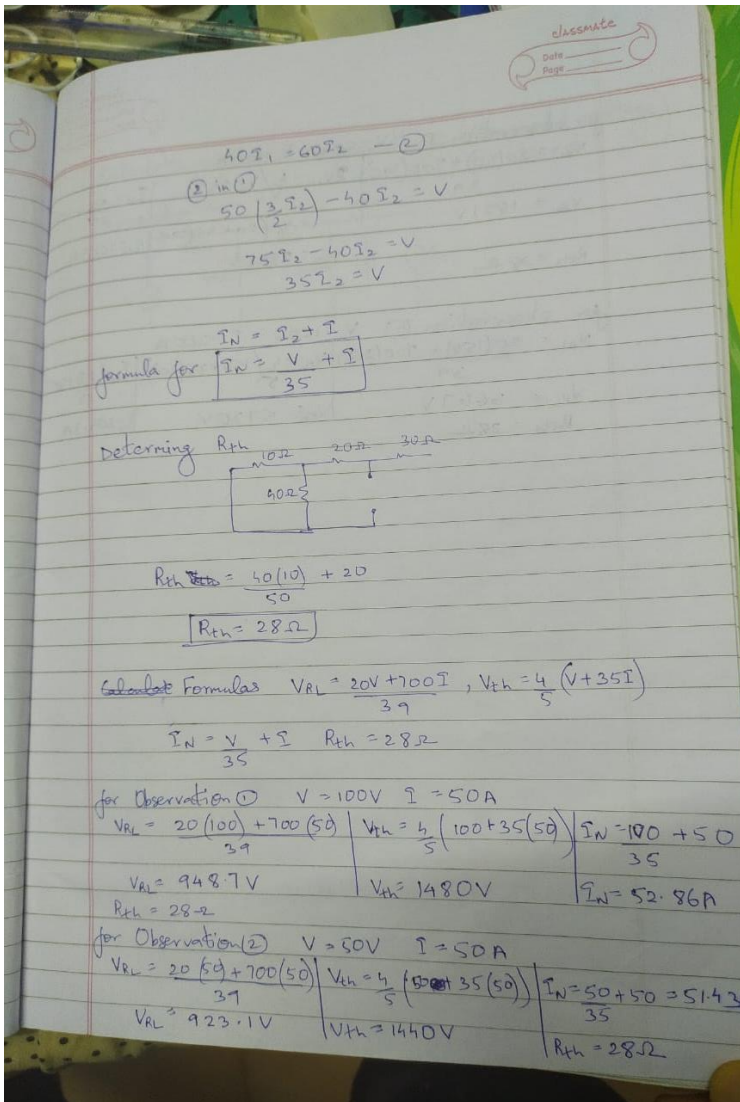 classmate
Date
Page
40I₁ = 60I₂ — ②
② in ①
50 (3/2 I₂) - 40I₂ = V
75I₂ - 40I₂ = V
35I₂ = V
I_N = I₂ + I
formula for I_N = V/35 + I
Determing Rth
10Ω 20Ω 30Ω
40Ω
Rth = 40(10)/50 + 20
Rth = 28Ω
Formulas V_RL = (20V + 700I)/39 , Vth = 4/5 (V + 35I)
I_N = V/35 + I Rth = 28Ω
for Observation ① V = 100V I = 50A
V_RL = (20(100) + 700(50))/39 | Vth = 4/5 (100 + 35(50) | I_N = 100/35 + 50
V_RL = 948.7V | Vth = 1480V | I_N = 52.86A
Rth = 28Ω
for Observation ② V = 50V I = 50A
V_RL = (20(50) + 700(50))/39 | Vth = 4/5 (50 + 35(50)) | I_N = 50/35 + 50 = 51.43
V_RL = 923.1V | Vth = 1440V | Rth = 28Ω